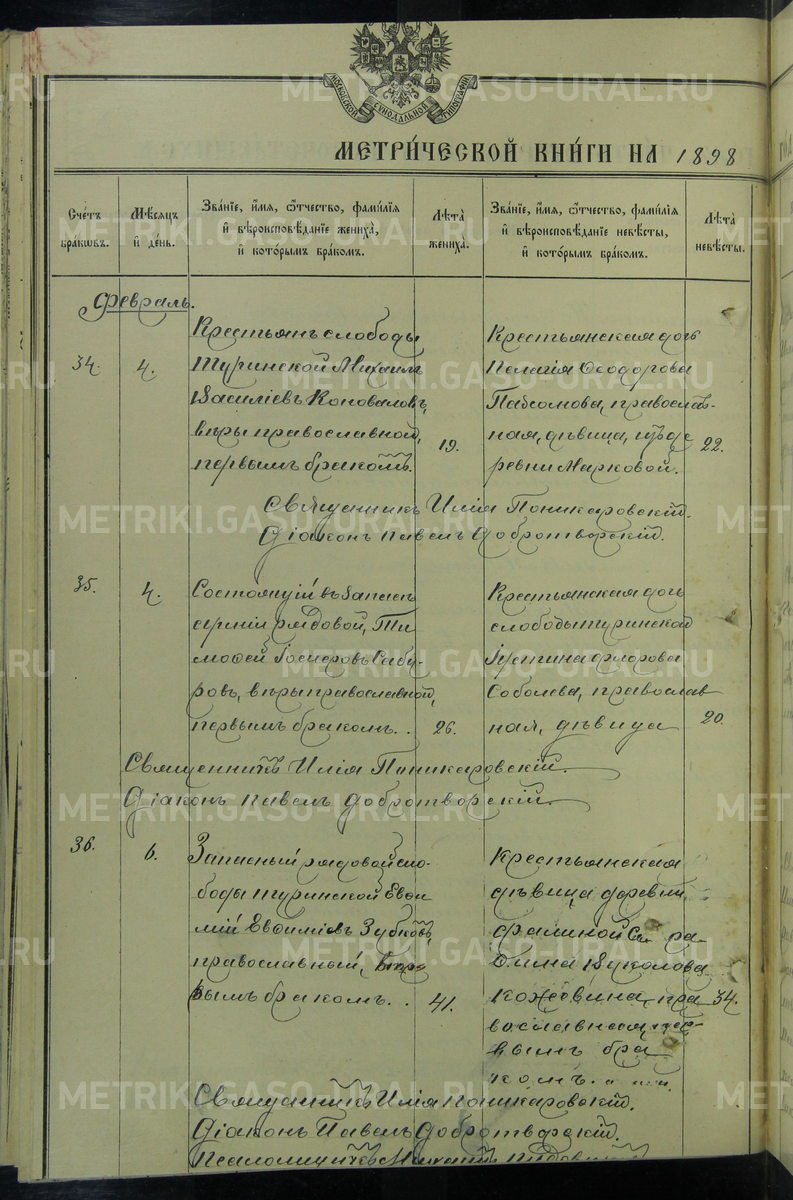 МОСКОВСКОЙ СУНОДАЛЬНОЙ ТИПОГРАФІИ
МЕТРИ́ЧЕСКОЙ КНИ́ГИ НА 1898
Счетъ бра́кѡвъ.
Мѣсяцъ и҆ де́нь.
Зва́нїе, и҆́мя, ѻ҆́тчество, фами́лїя и҆ вѣроисповѣ́данїе жениха̀, и҆ кото́рымъ бра́комъ.
Лѣта̀ жениха.
Зва́нїе, и҆́мя, ѻ҆́тчество, фами́лїя и҆ вѣроисповѣ́данїе невѣсты, и҆ кото́рымъ бра́комъ.
Лѣта̀ невѣсты.
Февраль.
34.
4.
Крестьянъ слободы
Туринской Михаилъ
Василіевъ Коноваловъ,
вѣры православной,
первымъ бракомъ.
19.
Крестьянская дочь
Пелагія Ѳеодорова
православ-
ная, дѣвица, изъ де
ревни Марковой.
22.
Священникъ Илія Поникаровскій.
Діаконъ Павелъ Добротворскій.
35.
4.
Состоящій въ запасѣ
арміи рядовой, Ти
моѳей Іосифовъ Сабу-
ровъ, вѣры православной,
первымъ бракомъ..
26.
Крестьянская дочь
слободы Туринской
Іустина Флорова
Соболева, православ
ная, дѣвица
20.
Священникъ Илія Поникаровскій.
Діаконъ Павелъ Добротворскій.
36.
6.
Запасный рядовой сло-
боды Туринской Евѳи
мій Евѳиміевъ Зубковъ,
православный,
вымъ бракомъ..
41.
Крестьянская
дѣвица деревни
Фалиной ра
Вуколова
Кожевина, пра
вославная, пер-
вымъ бра
комъ.
34.
Священникъ Илія Поникаровскій.
Діаконъ Павелъ Добротворскій.
Псаломщикъ
METRIKI.GASO-URAL.RU